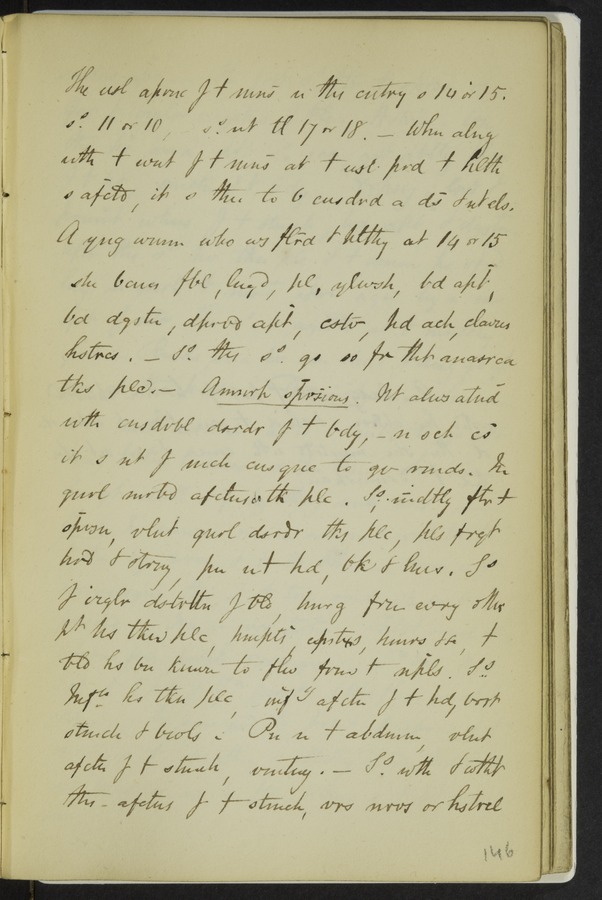 The usl aprnc f t mns n this cntry s 14 or 15.
so. 11 or 10, so. nt tl 17 or 18. — Whn alng
wth t wnt f t mns at t usl prd t hlth
s afctd, it s thn to b cnsdrd a ds & nt els.
A yng wmn who ws flrd & hlthy at 14 or 15
she bcms fbl, lngd, pl, ylwsh, bd apt,
bd dgstn, dprvd apt, cstv, hd ach, clavus
hstrcs. — So. ths ds. gs so fr tht anasrca
tks plc. — Amnrh sprsions. Nt alws atnd
wth cnsdrbl dsrdr f t bdy, — n sch cs
it s nt f mch cnsqnc to gv rmds. In
gnrl mrbd afctns tk plc. So. imdtly ftr t
sprsn, vlnt gnrl dsrdr tks plc, pls frqt
hrd & strng, pn n t hd, bk & lms. So
f irglr dstrbtn f bld, hmrg frm evry othr
pt hs tkn plc, hmpts, epstxs, hmrs &c, t
bld hs bn knwn to flw frm t npls. So
Infln hs tkn plc, inf afctn f t hd, brst
stmch & bwls. Pn n t abdmn, vlnt
afctn f t stmch, vmtng. — So. wth & wtht
ths afctns f t stmch, vrs nrvs or hstrcl
146